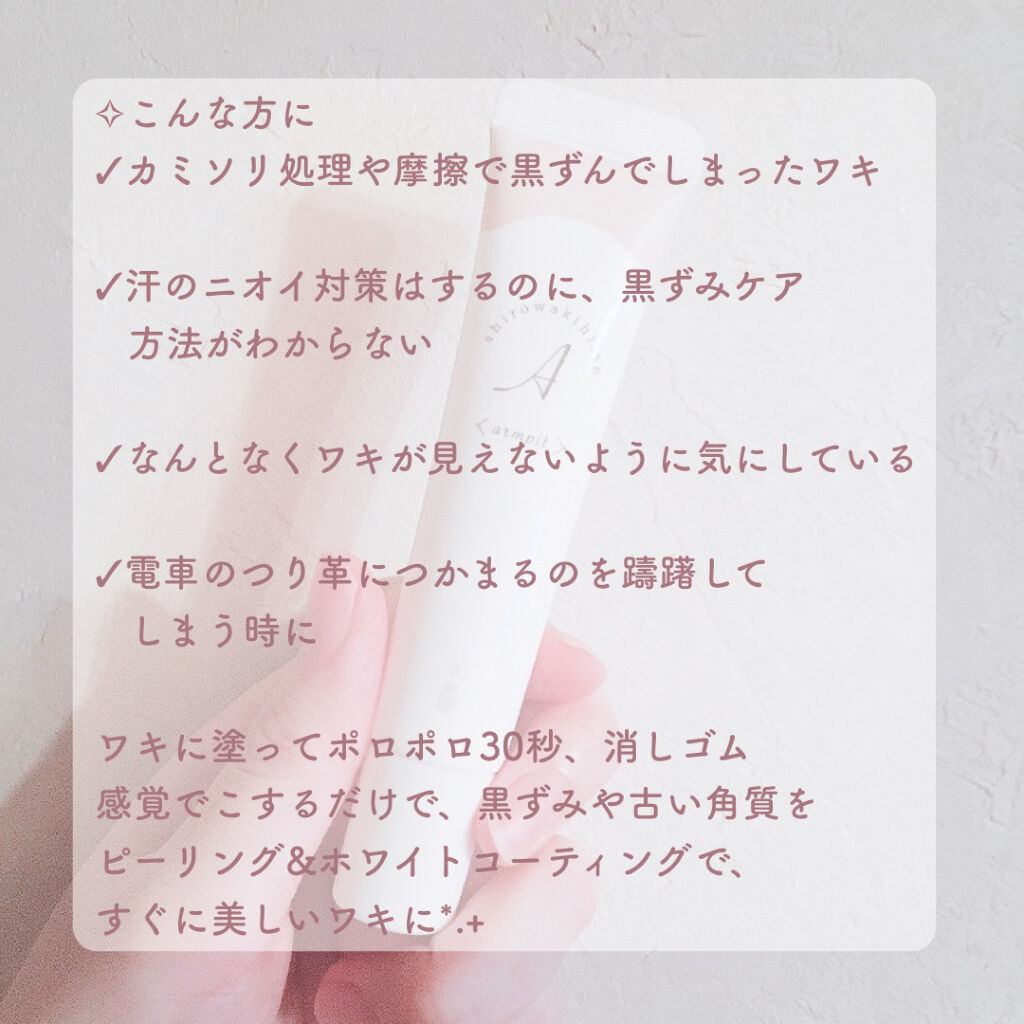 ✧こんな方に
✓カミソリ処理や摩擦で黒ずんでしまったワキ
✓汗のニオイ対策はするのに、黒ずみケア
方法がわからない
shirowakihime
A
armpit
✓なんとなくワキが見えないように気にしている
✓電車のつり革につかまるのを躊躇して
しまう時に
ワキに塗ってポロポロ30秒、消しゴム
感覚でこするだけで、黒ずみや古い角質を
ピーリング&ホワイトコーティングで、
すぐに美しいワキに*.+